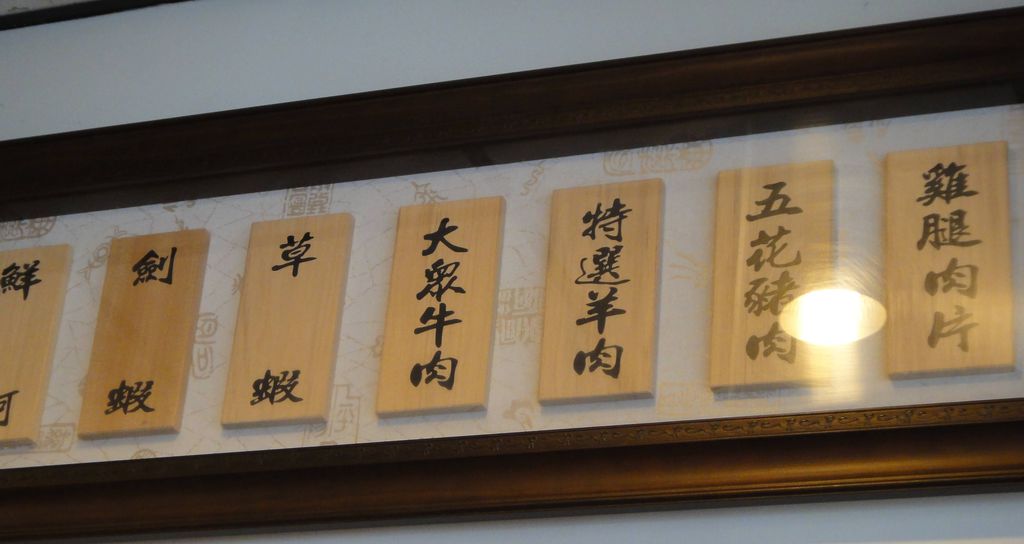 雞腿肉片
五花豬肉
特選羊肉
大眾牛肉
草蝦
劍蝦
鮮